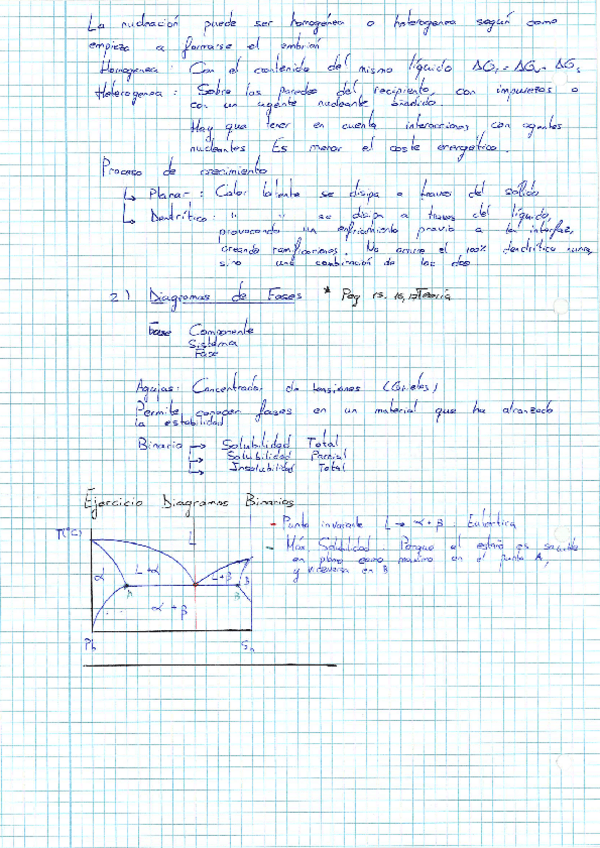 La nucleación puede ser homogénea o heterogenea según como
empieza a formarse el embrión
Homogenea: Con el contenido del mismo líquido ΔG
Heterogenea: Sobre las paredes del recipiente, con impurezas o
con un agente nucleante añadido.
Hay que tener en cuenta interacciones con agentes
nucleantes Es menor el coste energético.
Proceso de crecimiento
↳ Planar: Calor latente se disipa a traves del solido
↳ Dentrítico: " " se disipa a traves del líquido,
provocando un enfriamiento previo a la interfaz,
creando ramificaciones. No ocurre el 100% dendrítico nunca,
sino una combinación de los dos
2) Diagramas de Fases * Pag 15, 16, 17 Teoría
Componente
Sistema
Fase
Agujas: Concentrador de tensiones (Grietas)
Permite conocer fases en un material que ha alcanzado
la estabilidad
Binario → Solubilidad Total
↳ Solubilidad Parcial
↳ Insolubilidad Total
Ejercicio Diagramas Binarios
T(ºC)
L
α
L+α
L+β
β
A
B
α+β
Pb
Sn
- Punto invariante L → α+β Eutéctica
- Máx Solubilidad Porque el estaño es
en plomo como máximo en el punto A,
y viceversa en B